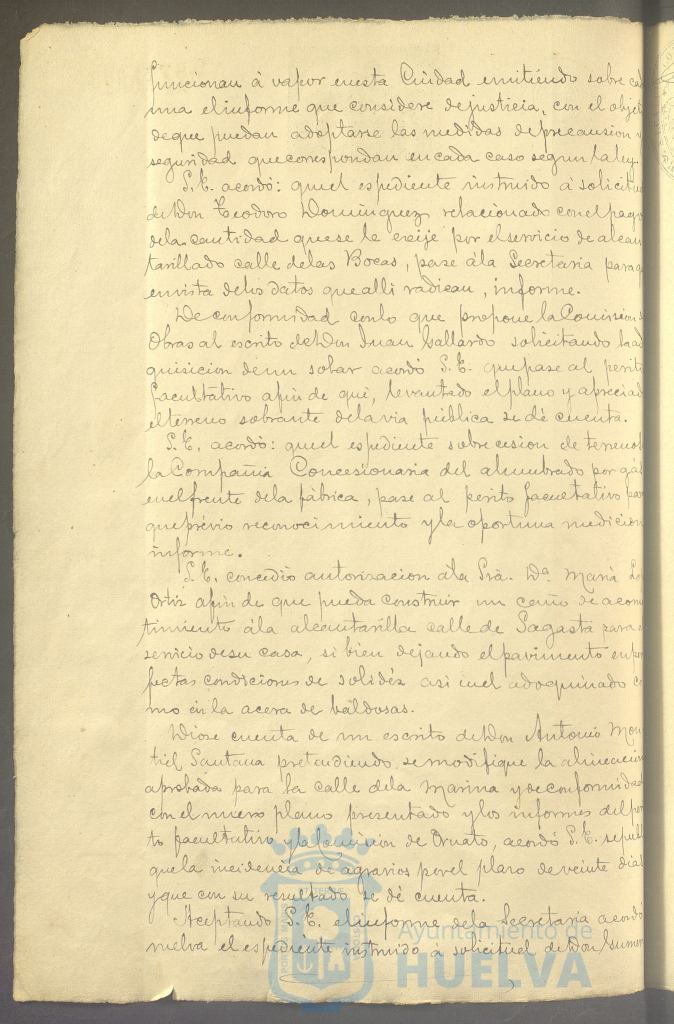 funcionan á vapor enesta Ciudad emitiendo sobre ca
una elinforme que considere dejusticia, con el objet
deque puedan adoptarse las medidas deprecausion y
seguridad quecorrespondan encada caso segun laley.
S.E. acordó: quel espediente instruido á solicitu
deDon Teodoro Dominguez relacionado conelpago
dela cantidad quese le exije por elservicio de alcan
tarillado calle delas Bocas, pase ála Secretaria paraq
envista delos datos quealli radican, informe.
De conformidad conlo que propone laComision
Obras al escrito deDon Juan Gallardo solicitando laad
quisicion deun solar acordó S.E. quepase al perito
facultativo afin de que, levantado elplano y apreciad
elterreno sobrante dela via pública se dé cuenta.
S.E. acordó: quel espediente sobre cesion de terrenos
la Compañia Concesionaria del alumbrado por gas
enelfrente dela fábrica, pase al perito facultativo par
queprévio reconocimiento yla oportuna medicion
informe.
S.E. concedió autorizacion ála Srà. Dª Maria Lo
Ortiz afin de que pueda construir un caño de acome
timiento ála alcantarilla calle de Sagasta para
servicio desu casa, si bien dejando elpavimento enper
fectas condiciones de solidéz asi enel adoquinado co
mo en la acera de baldosas.
Diose cuenta de un escrito deDon Antonio Mon
tiel Santana pretendiendo semodifique la alineacion
aprobada para la calle dela Marina y deconformidad
con el nuevo plano presentado ylos informes delperi
to facultativo ylaComision de Ornato, acordó S.E. sepubli
quela incidencia de agravios porel plazo deveinte dias
yque con su resultado se dé cuenta.
Aceptando S.E. elinforme dela Secretaria acordó
vuelva el espediente instruido á solicitud deDon Gumer
Ayuntamiento de
HUELVA